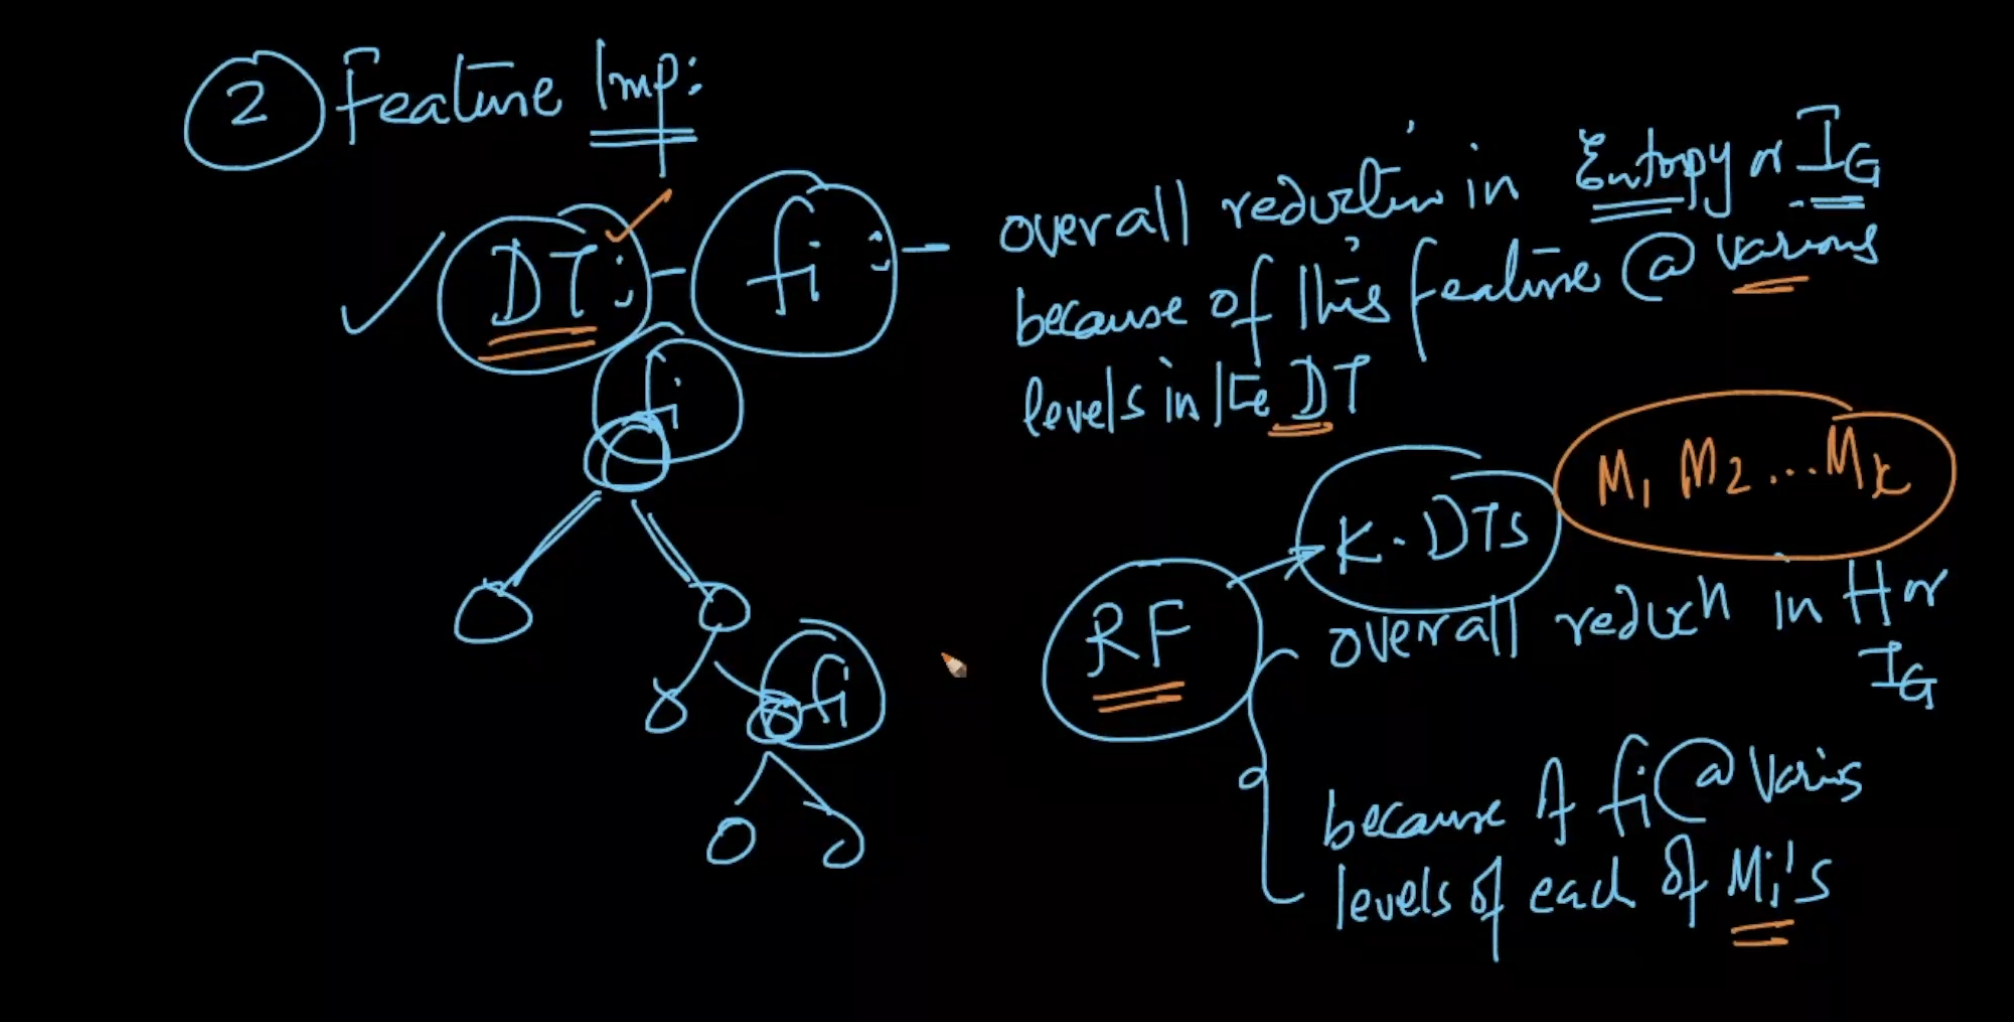 2 Feature Imp:
DT: - fi : - overall reduction in Entropy or IG
because of this feature @ various
levels in the DT
fi
fi
RF → K-DTs M1 M2 ... Mk
overall reductn in H or
IG
because of fi @ varios
levels of each of Mi's